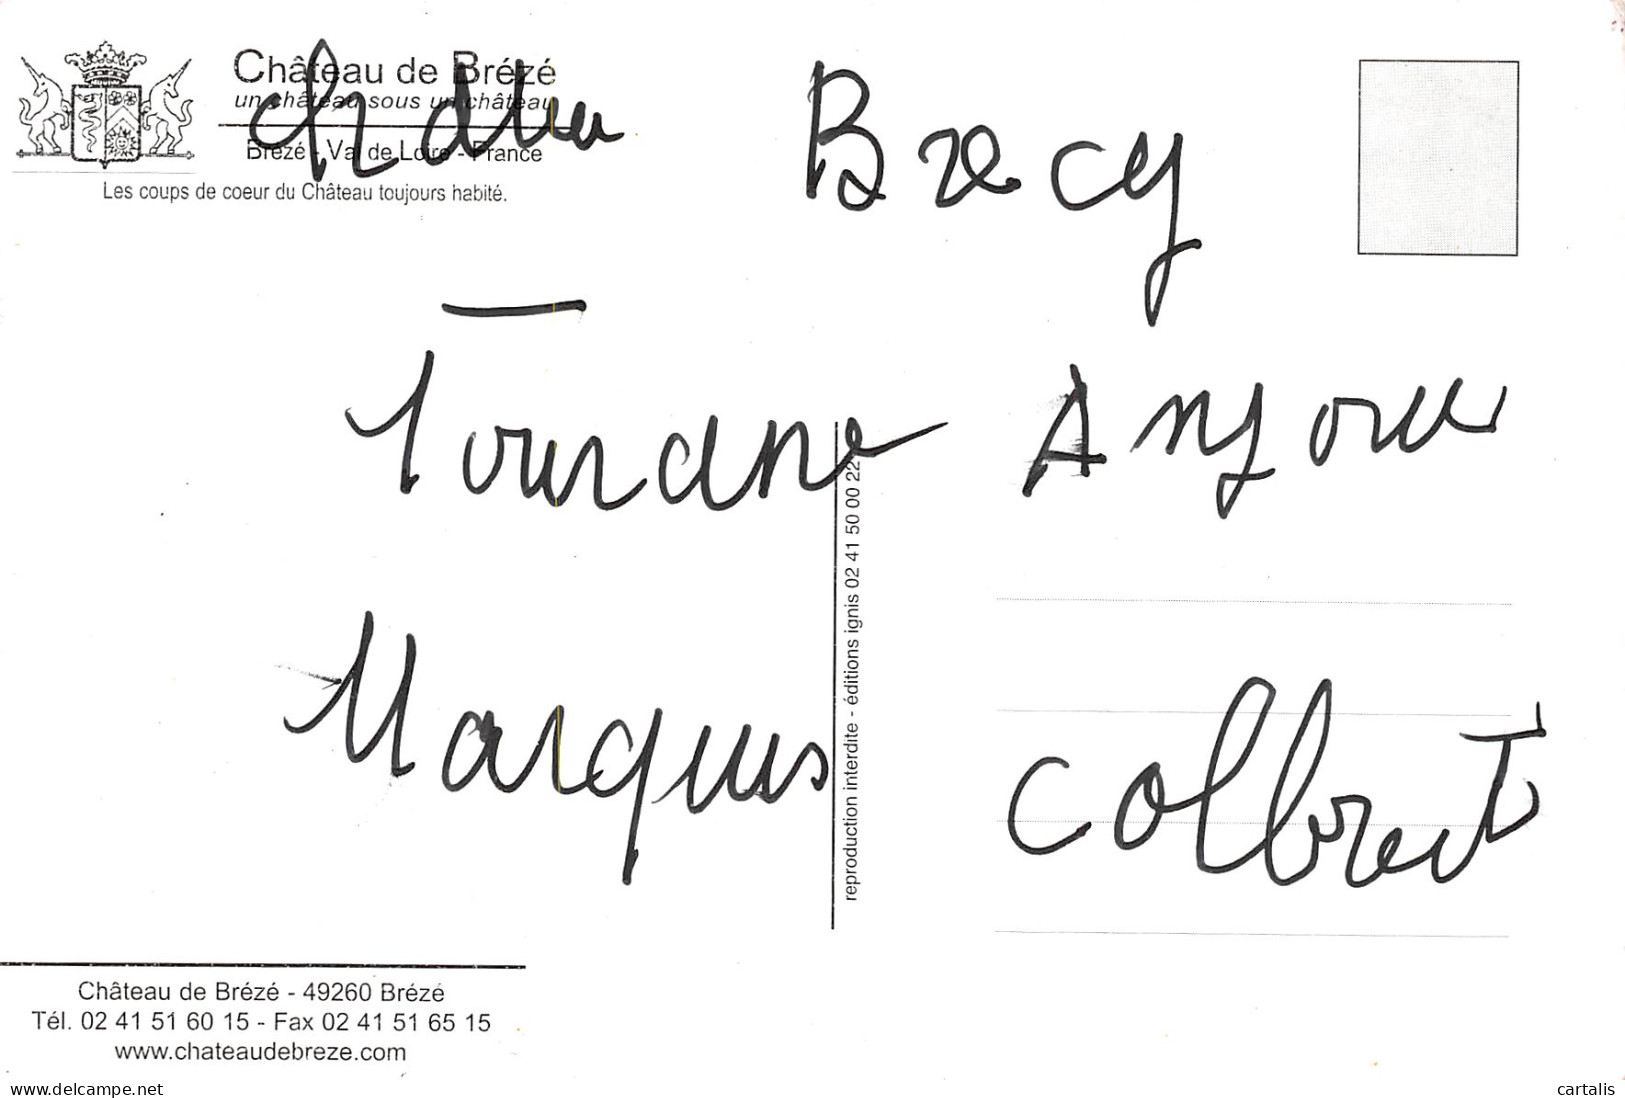 Château de Brézé
un château sous un château
Brézé - Val de Loire - France
Les coups de coeur du Château toujours habité.
Tourane Anjou
Marquis Colbert
reproduction interdite - éditions ignis 02 41 50 00 22
Château de Brézé - 49260 Brézé
Tél. 02 41 51 60 15 - Fax 02 41 51 65 15
www.chateaudebreze.com
www.delcampe.net
cartalis